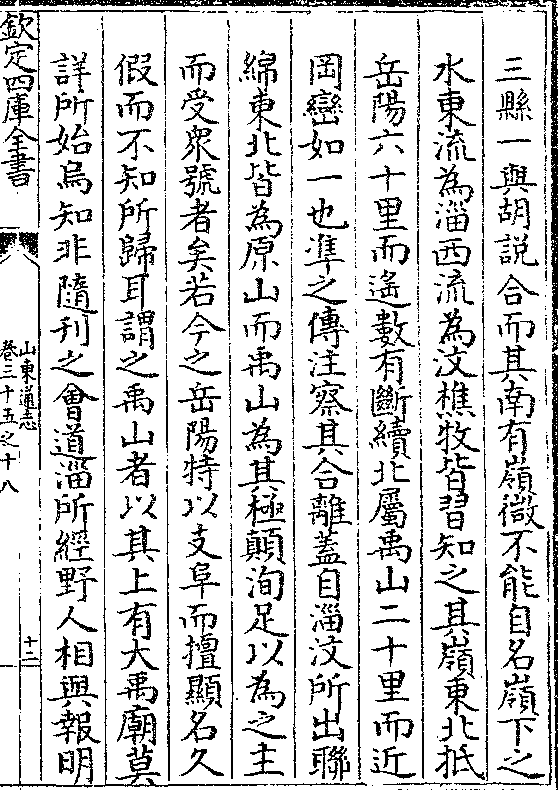 三縣一與胡説合而其南有嶺微不能自名嶺下之
水東流為淄西流為汶樵牧皆習知之其嶺東北抵
岳陽六十里而遙數有斷續北屬禹山二十里而近
岡巒如一也準之傳注察其合離蓋自淄汶所出聯
綿東北皆為原山而禹山為其極顛洵足以為之主
而受衆號者矣若今之岳陽特以支阜而擅顯名久
假而不知所歸耳謂之禹山者以其上有大禹廟莫
詳所始烏知非隨刊之會道淄所經野人相與報明
欽定四庫全書
山東通志
卷三十五之十八
十二